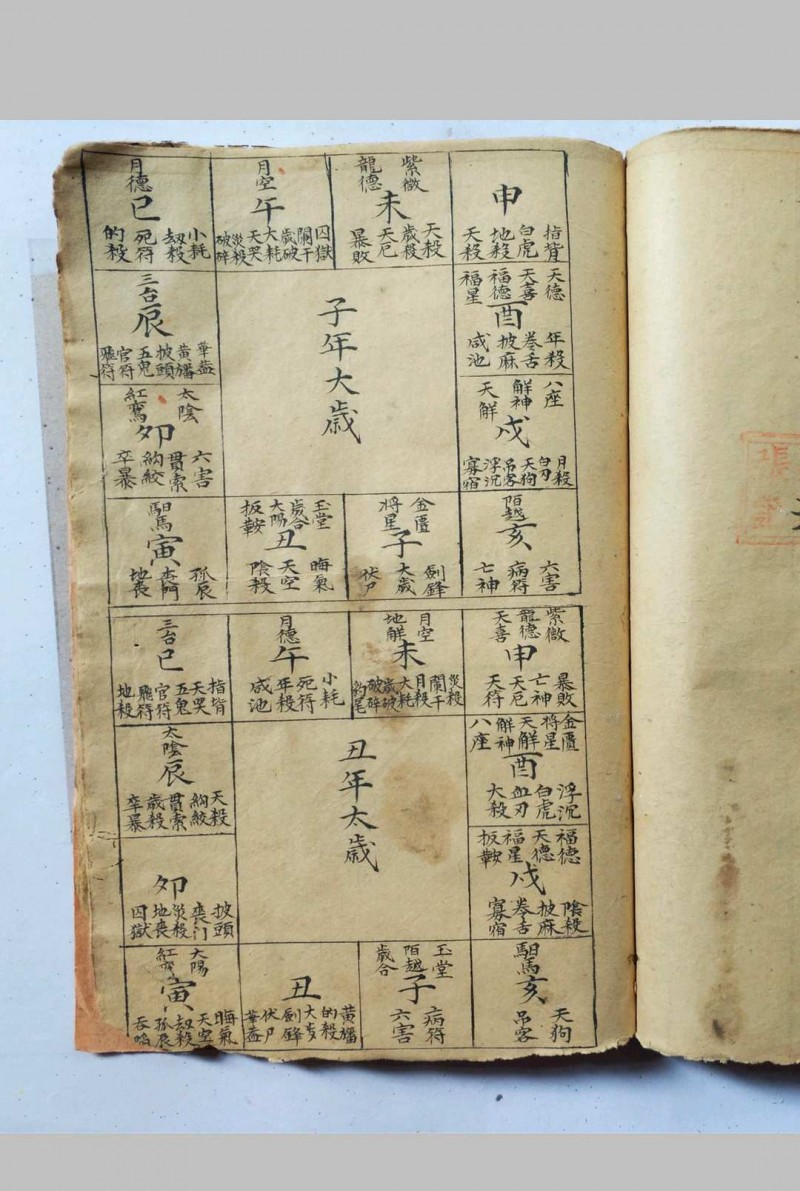 申
指背
白虎
地殺
天殺
紫微
龍德
未
天殺
歲殺
天厄
暴敗
月空
午
囚獄
闌干
歲破
大耗
天哭
災殺
破碎
月德
巳
小耗
劫殺
死符
的殺
天德
天喜
福德
福星
酉
年殺
卷舌
披麻
咸池
子年大歲
三台
辰
華蓋
黃旛
披頭
五鬼
官符
飛符
八座
解神
天解
戌
月殺
白刃
天狗
吊客
浮沉
寡宿
太陰
紅鸞
卯
六害
貫索
絞
卒暴
陌越
亥
六害
病符
亡神
金匱
将星
子
劍鋒
大歲
伏尸
玉堂
歲合
太陽
扳鞍
丑
晦氣
天空
陰殺
馹馬
寅
孤辰
喪門
地喪
紫微
龍德
天喜
申
暴敗
亡神
天厄
天符
月空
地解
未
災殺
闌干
月殺
大耗
歲破
破碎
豹尾
月德
午
小耗
死符
年殺
咸池
三台
巳
指背
天哭
五鬼
官符
飛符
地殺
金匱
将星
天解
解神
八座
酉
浮沉
白虎
血刃
大殺
丑年太歲
太陰
辰
天殺
絞
貫索
歲殺
卒暴
福德
天德
福星
扳鞍
戌
陰殺
披麻
卷舌
寡宿
卯
披頭
喪门
災殺
地喪
囚獄
馹馬
亥
天狗
吊客
玉堂
陌越
歲合
子
病符
六害
丑
黃旛
的殺
劍鋒
伏尸
華蓋
太陽
紅鸞
寅
晦氣
天空
劫殺
孤辰
吞陷